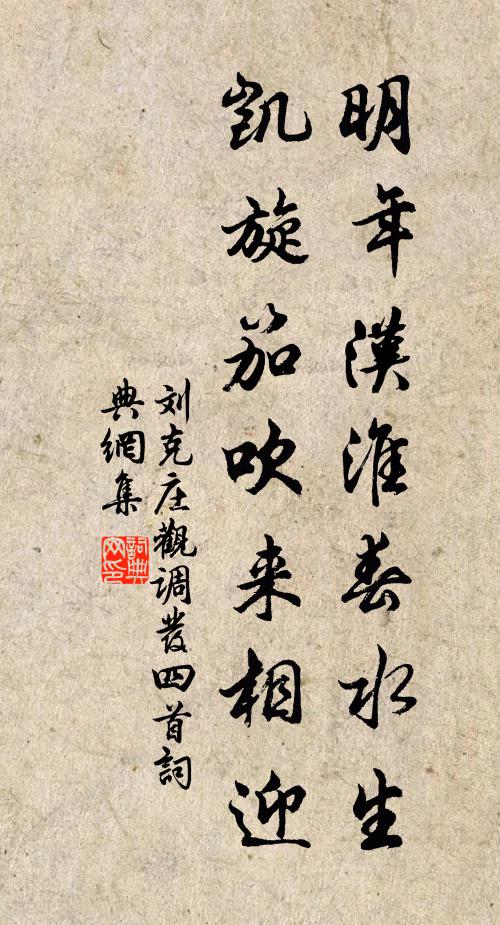 明年漢淮春水生
凱旋笳吹来相迎
刘克庄觀调發四首詞
典網集
詞典
网印